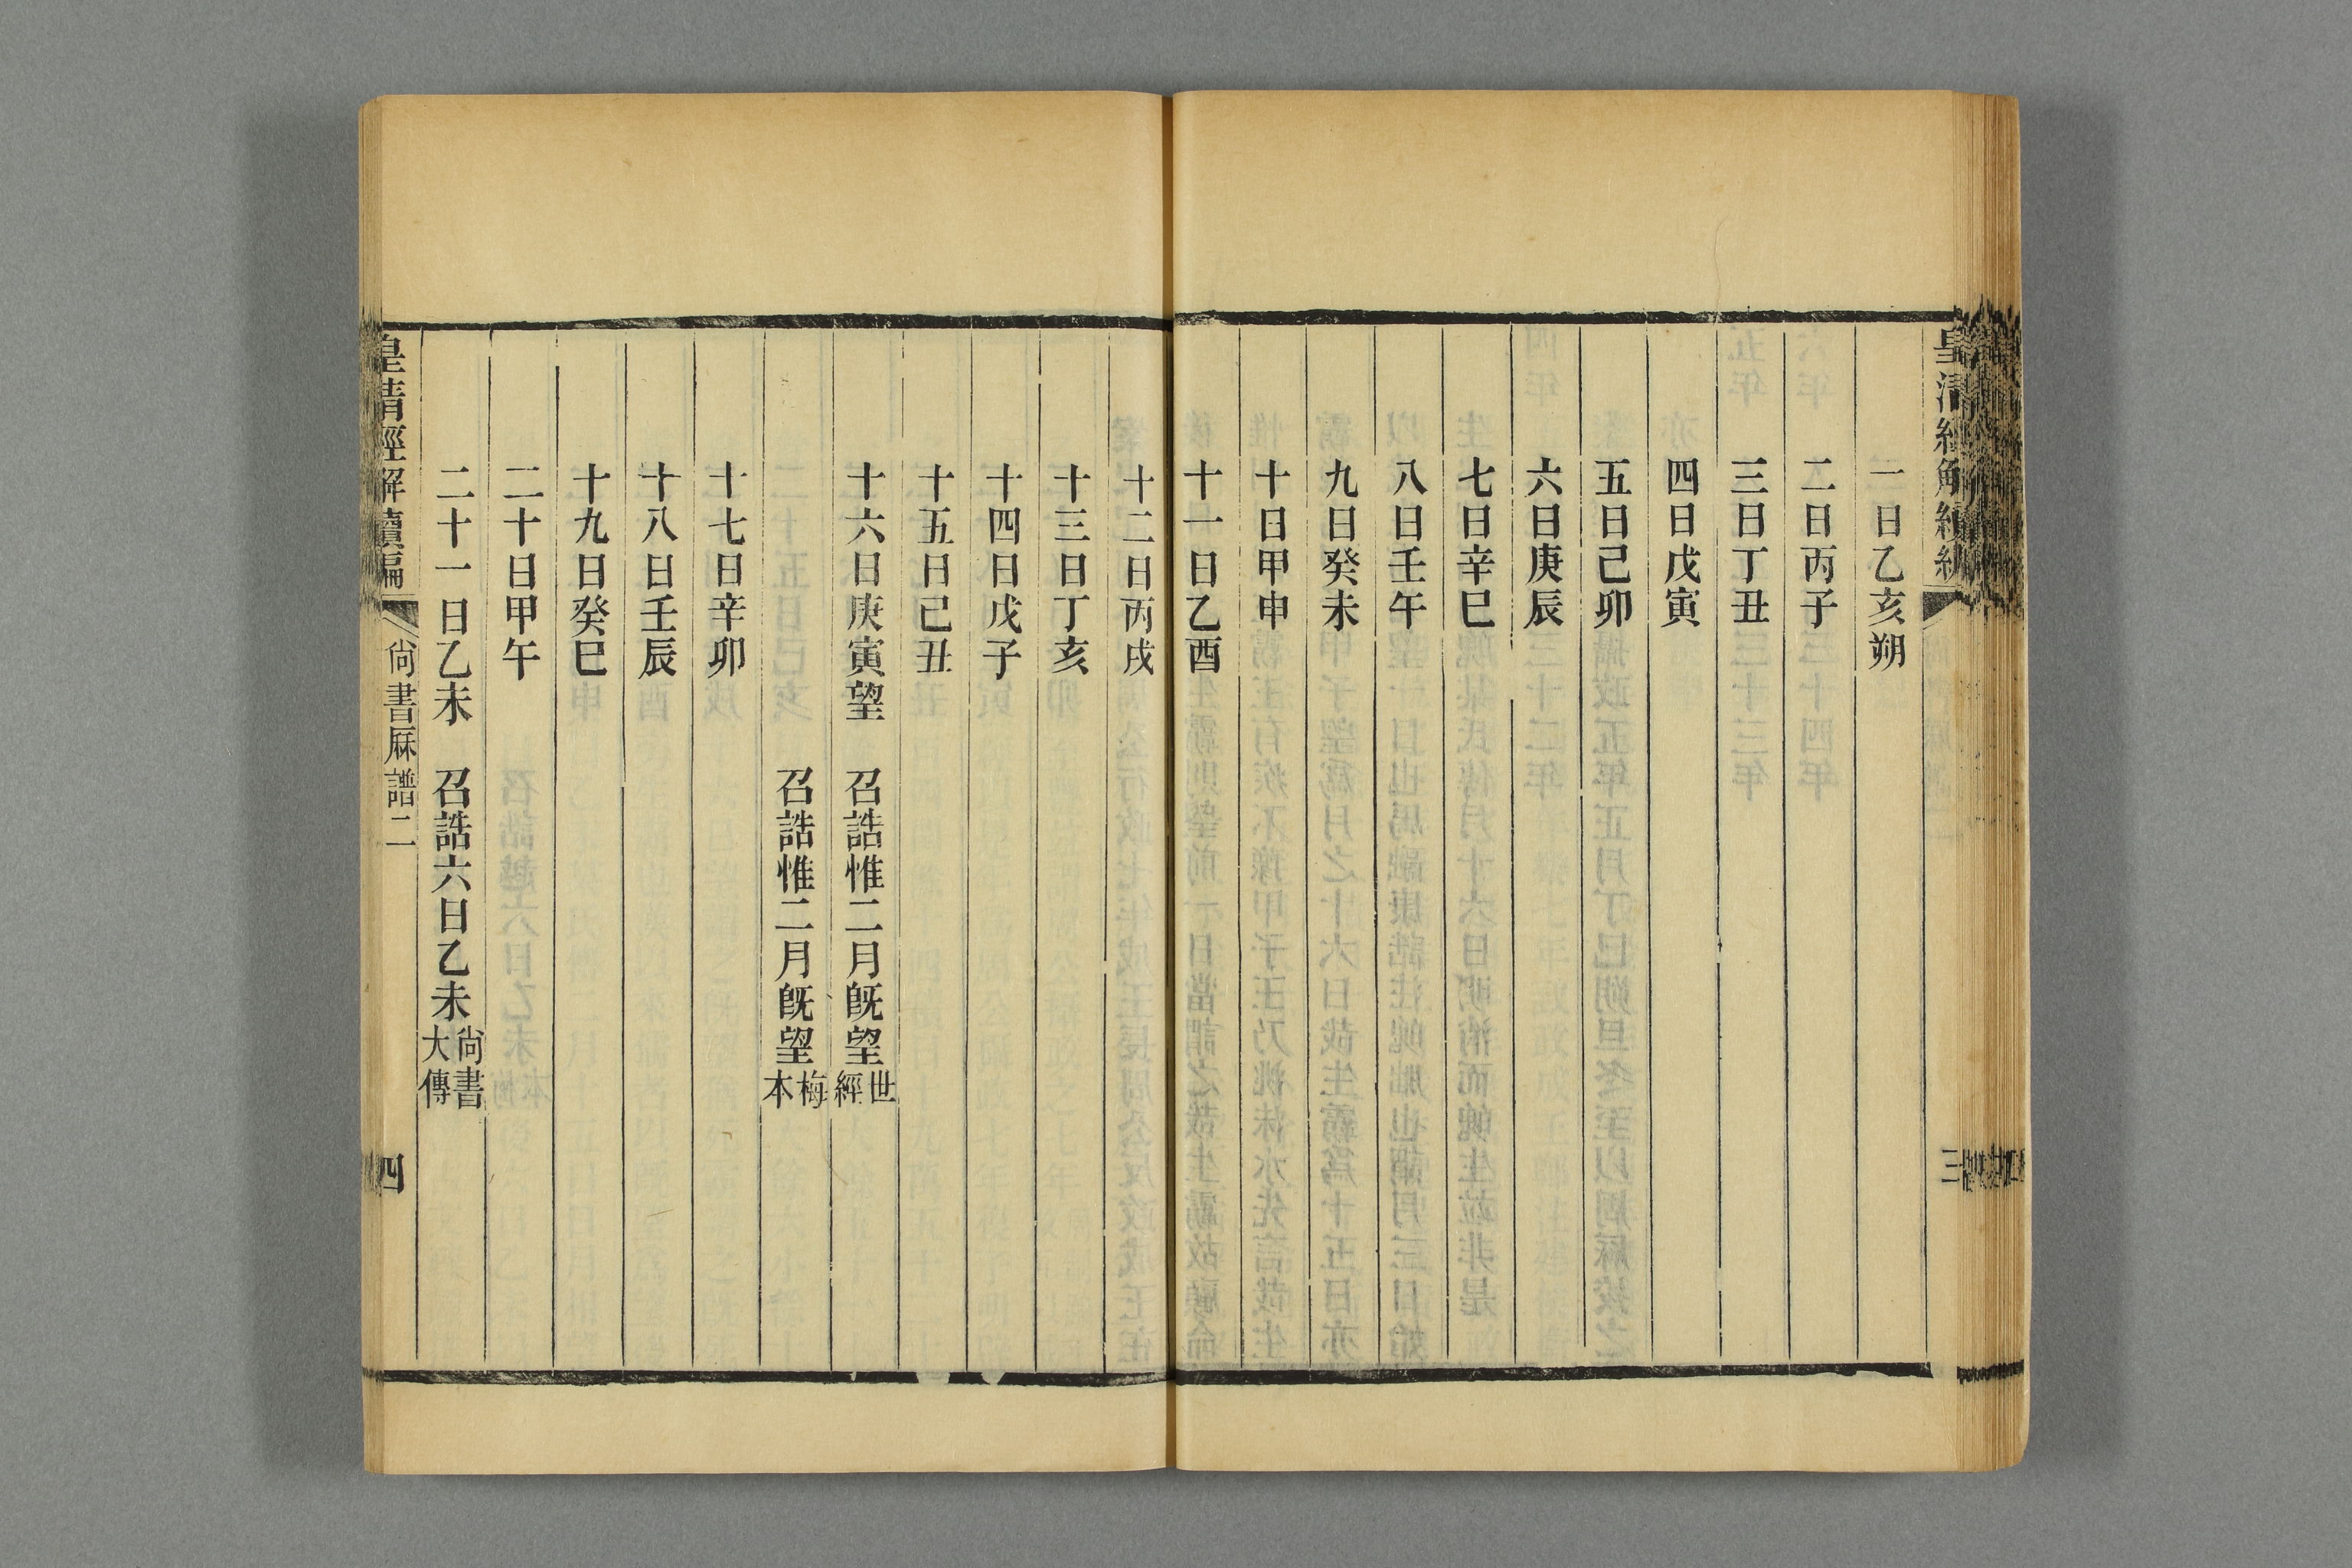 一日乙亥朔
二日丙子
三日丁丑
四日戊寅
五日己卯
六日庚辰
七日辛巳
八日壬午
九日癸未
十日甲申
十一日乙酉
十二日丙戌
十三日丁亥
十四日戊子
十五日己丑
十六日庚寅望 召誥惟二月旣望世經
召誥惟二月旣望梅本
十七日辛卯
十八日壬辰
十九日癸巳
二十日甲午
二十一日乙未 召誥六日乙未尙書大傳
皇清經解續編 尙書厤譜二 四